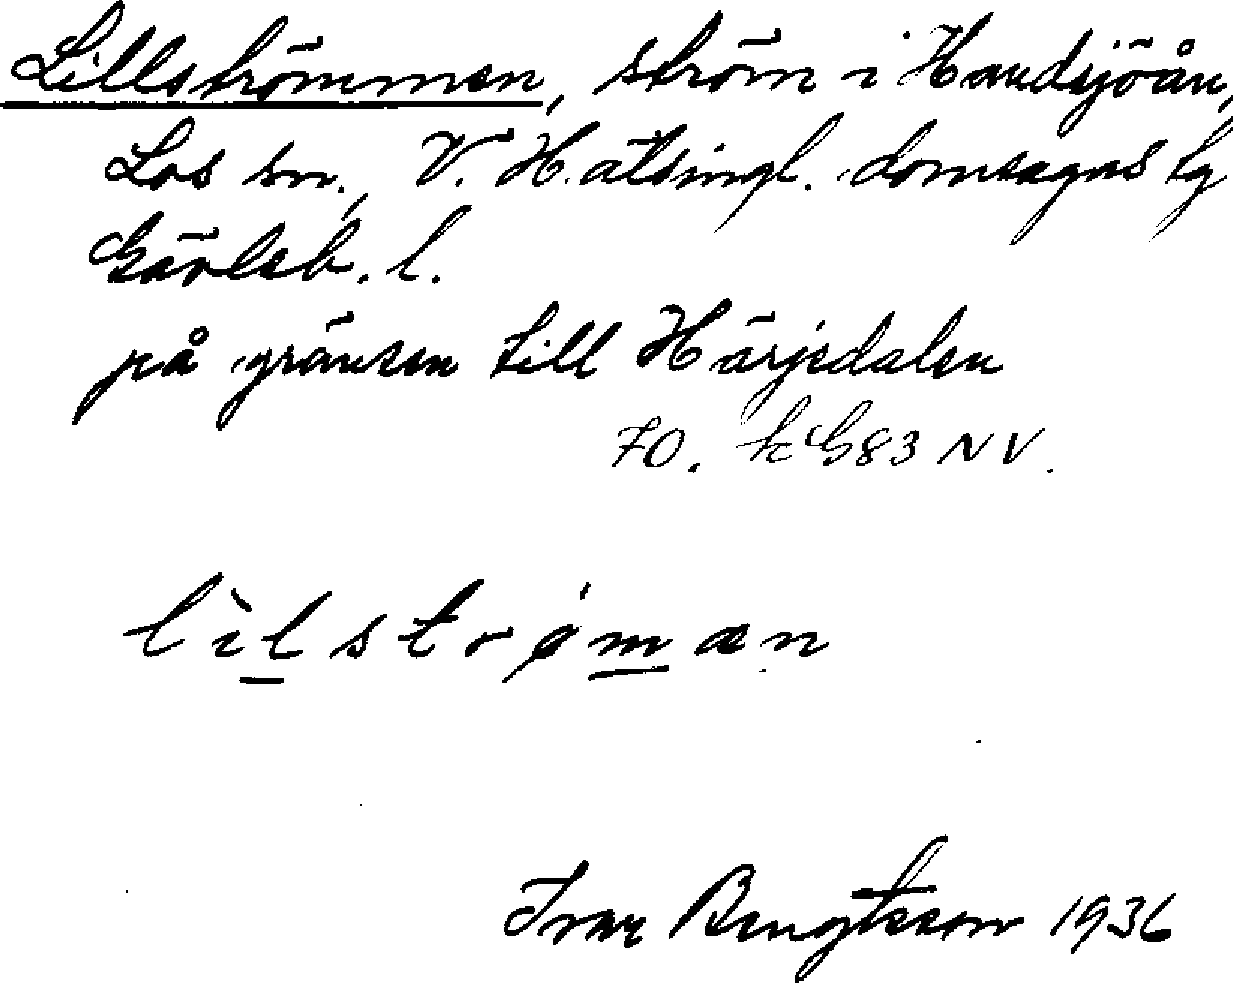 Lillströmmen, ström i Handsjöån,
Los sn., V. Hälsingl. domsagas tg
Gävleb. l.
på gränsen till Härjedalen
FO. k G83 NV.
lìlstrǿmæn
Ivar Bengtsson 1936